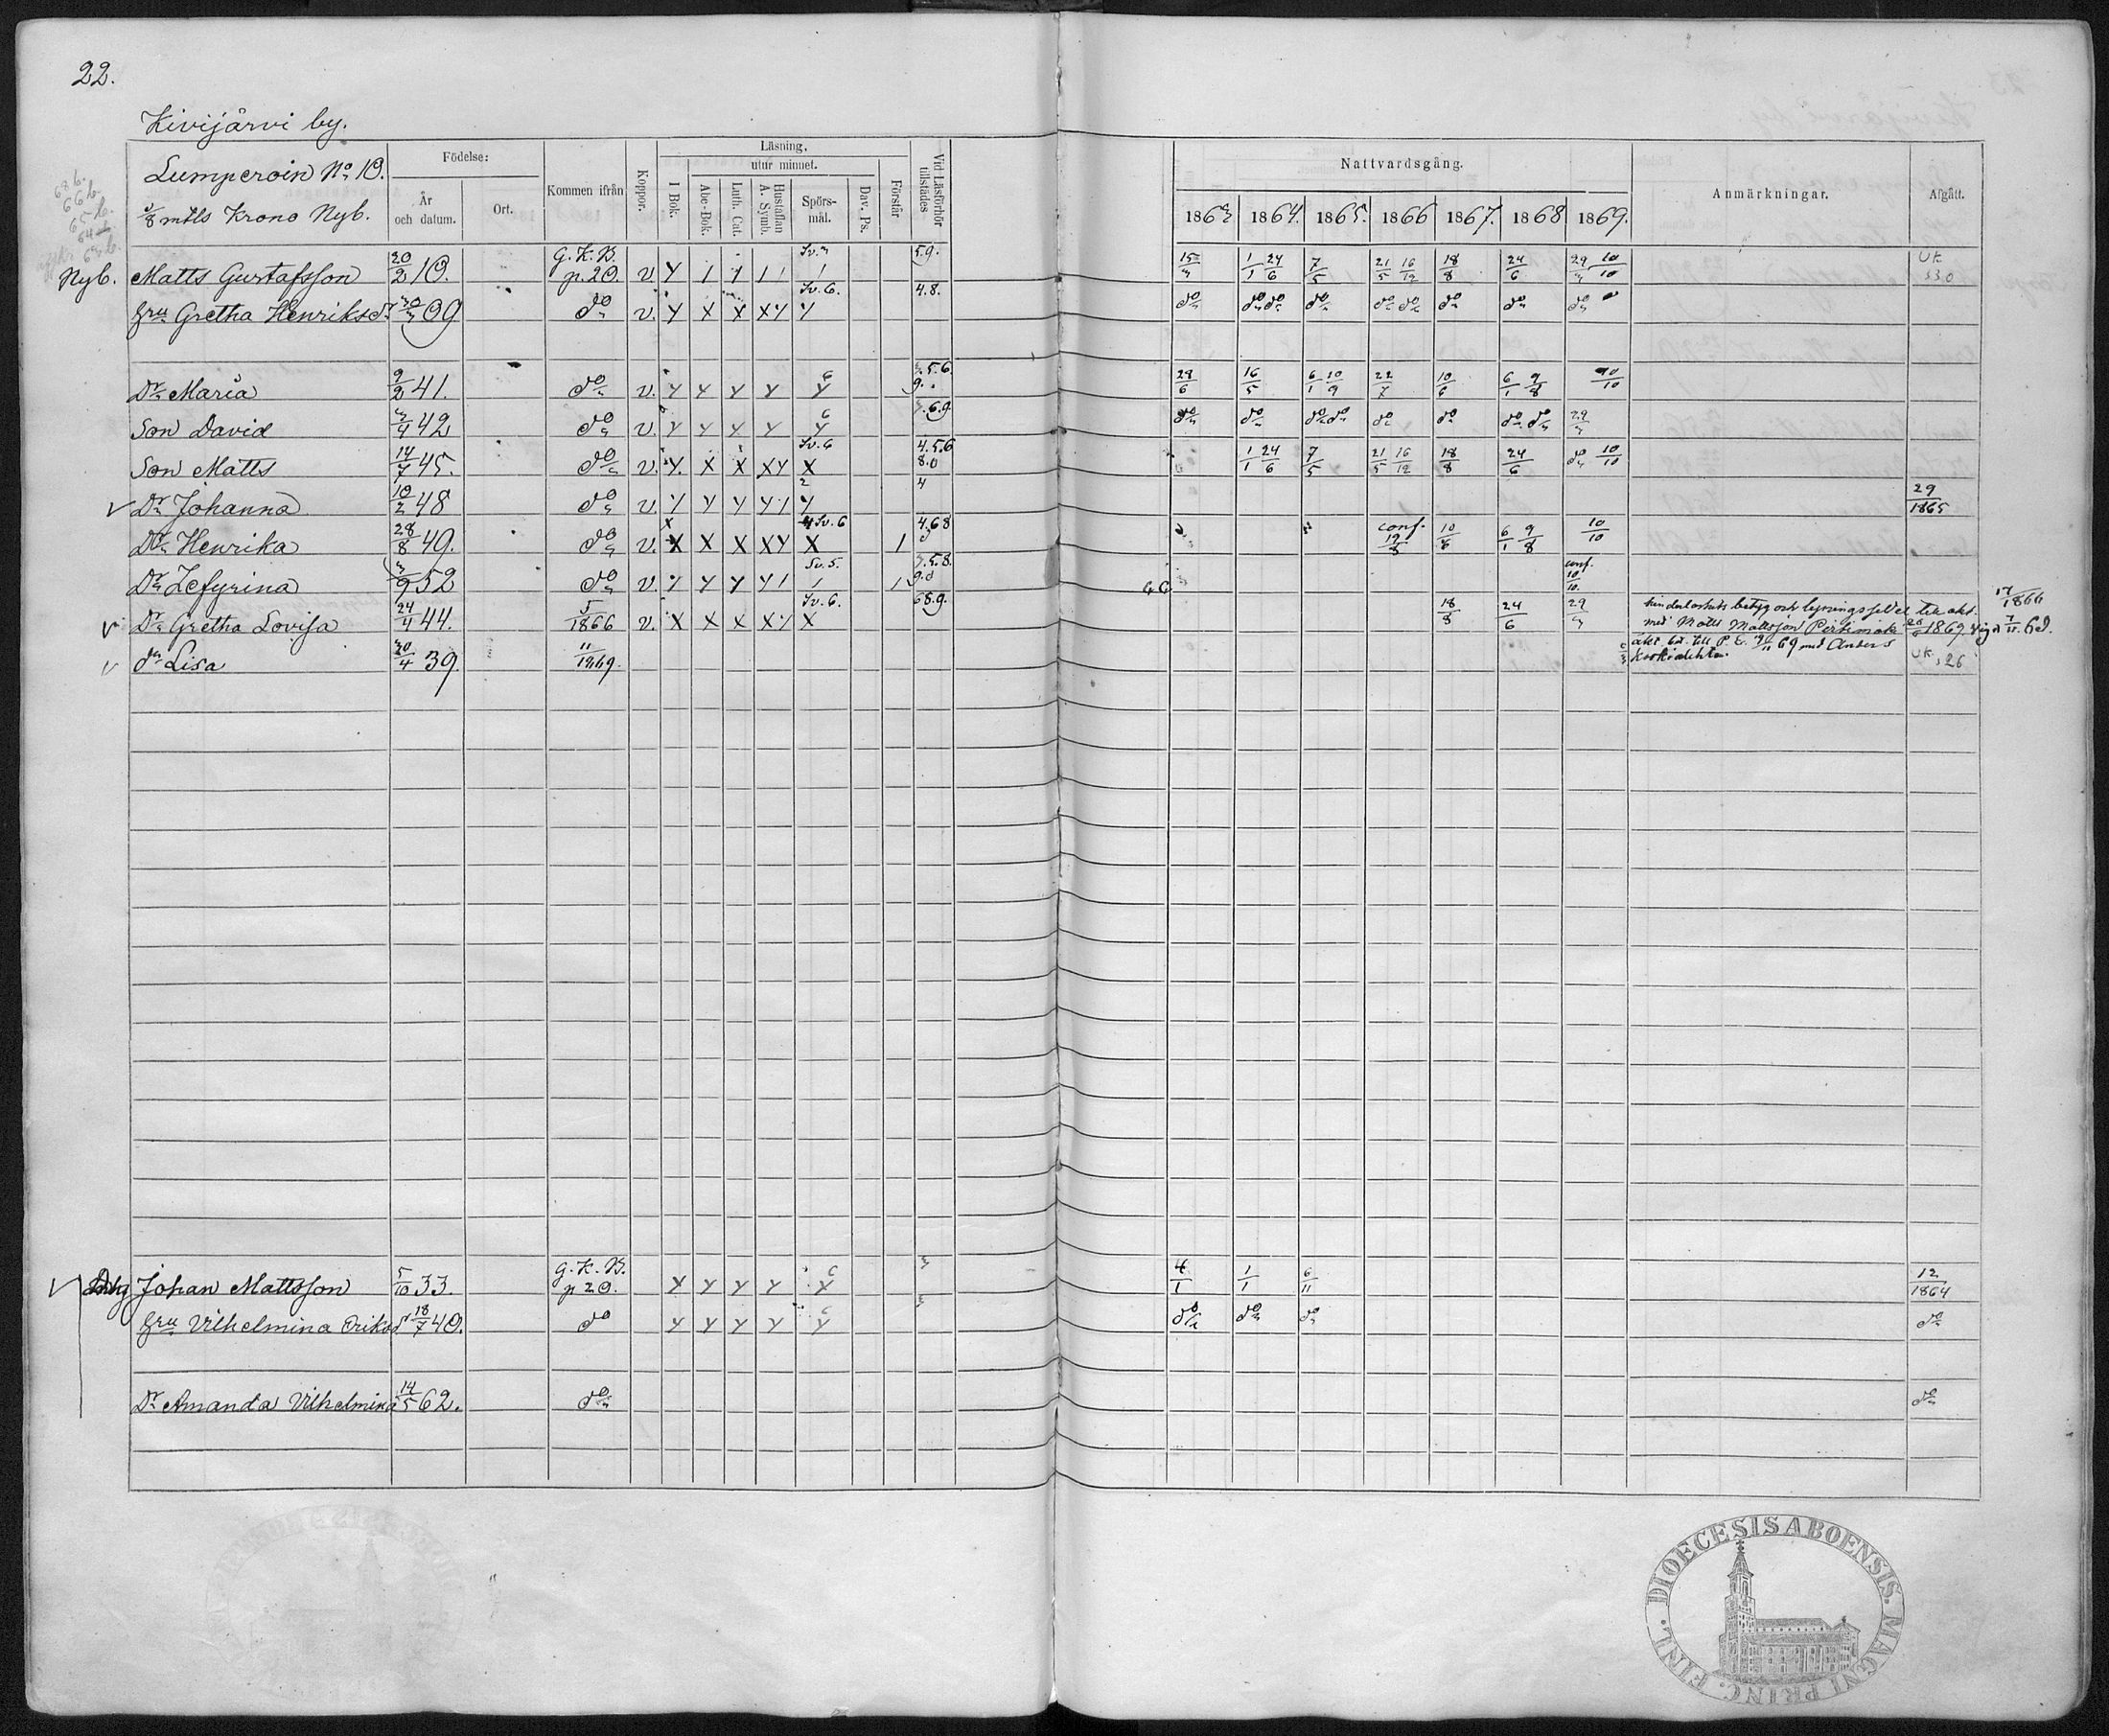 22.
Kivijärvi by.
Lumperoin No 10.
3/8 mtls Krono Nyb.
Födelse:
År och datum.
Ort.
Kommen ifrån
Koppor.
Läsning,
utur minnet.
I Bok.
Abc-Bok.
Luth. Cat.
Hustaflan A. Symb.
Spörsmål.
Dav. Ps.
Förstår
Vid Läsförhör tillstädes
Nattvardsgång.
1863 1864. 1865. 1866 1867. 1868 1869.
Anmärkningar.
Afgått.
68 b.
66 b.
65 b.
64 b.
63 b.
Nyb. Matts Gustafsson 20/2 10. G. K. B. p. 20. v. Y 1 1 1 1 1 Sv. 3 5.9. 15/3 1/1 24/6 7/5 21/5 16/12 18/8 24/6 29/3 10/10 UK 330
Hru Gretha Henriksdr 30/3 09 do v. Y X X XY Y Sv. 6. 4.8. do do do do do do do do do
Dr Maria 9/2 41. do v. Y Y Y Y Y 6 3.5.6. 9. 28/6 16/5 6/1 10/9 22/7 10/6 6/1 9/8 10/10
Son David 3/4 42 do v. Y Y Y Y Y 6 7.6.9 do do do do do do do do 29/3
Son Matts 14/7 45. do v. Y. X X XY X Sv. 6 4.5.6 8.0 1/1 24/6 7/5 21/5 16/12 18/8 24/6 do 10/10
Dr Johanna 10/2 48 do v. Y Y Y Y1 Y 2 4 29/1865
Dr Henrika 28/8 49. do v. X X X XY X Sv. 6 1 4.68 conf. 19/8 10/6 6/1 9/8 10/10
Dr Zefyrina 3/9 52 do v. Y Y Y Y1 1 Sv. 5. 1 7.5.8. 9.0 conf. 10/10.
Dr Gretha Lovisa 24/4 44. 5/1866 v. X X X XY X Sv. 6. 68.9. 18/8 24/6 29/3 hinderlöshets betyg och lysningssedel till äkt. 17/1866
med Matts Mattsson 26/6 1869
dr Lisa 30/4 39. 11/1869. 69 med Anders UK, 26
Johan Mattsson 5/10 33. G. K. B. p 20. X Y Y Y Y 6 3 4/1 1/1 6/11 12/1864
Hru Vilhelmina Eriksdr 18/7 40. do Y Y Y Y Y 6 3 do do do do
Dr Amanda Vilhelmina 14/5 62. do do
DIOECESIS ABOENSIS. MAGNI PRINC. FINL.